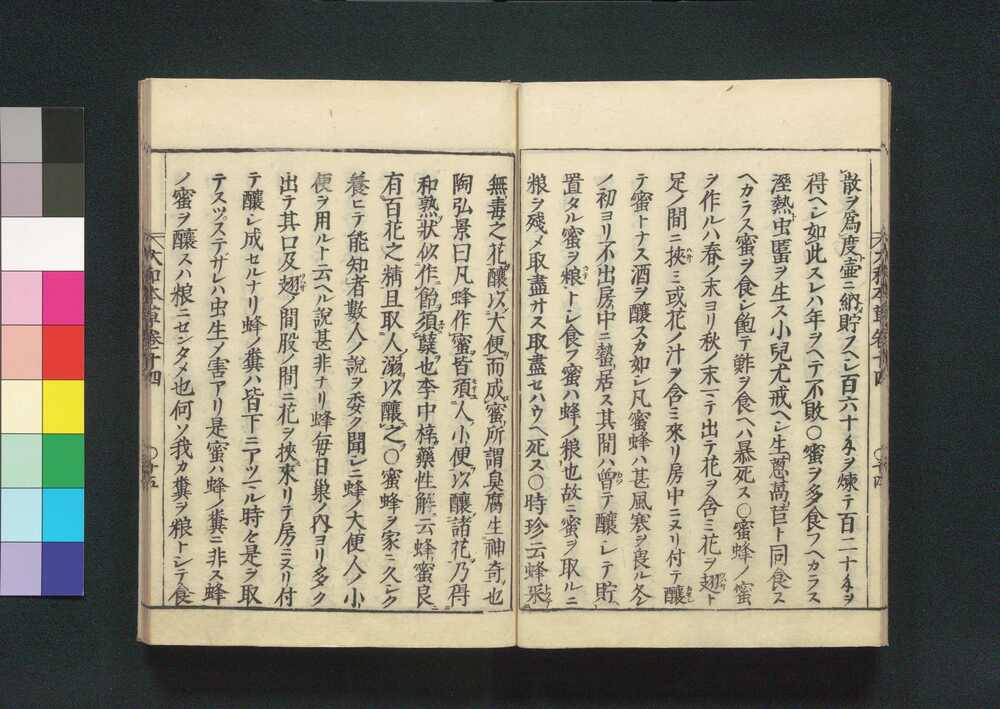 散ヲ為度壷ニ納貯フヘシ百六十匁ヲ煉テ百二十匁ヲ
得ヘシ如此スレハ年ヲヘテ不敗○蜜ヲ多食フヘカラス
湿熱虫䘌ヲ生ス小兒尤戒ヘシ生葱萵苣ト同食ス
ヘカラス蜜ヲ食シ飽テ鮓ヲ食ヘハ暴死ス○蜜蜂ノ蜜
ヲ作ルハ春ノ末ヨリ秋ノ末ニテ出テ花ヲ含ミ花ヲ翅ト
足ノ間ニ挾ミ或花ノ汁ヲ含ミ來リ房中ニヌリ付テ醸
テ蜜トナス酒ヲ醸スカ如シ凡蜜蜂ハ甚風寒ヲ畏ル冬
ノ初ヨリ不出房中ニ蟄居ス其間ハ曾テ醸シテ貯
置タル蜜ヲ粮トシ食フ蜜ハ蜂ノ粮也故ニ蜜ヲ取ルニ
粮ヲ残メ取盡サス取盡セハウヘ死ス○時珍云蜂采
無毒之花醸以大便而成蜜所謂臭腐生神奇也
陶弘景曰凡蜂作蜜皆須人小便以醸諸花乃得
和熟狀似作飴須糵也李中梓藥性解云蜂蜜良
有百花之精且取人溺以醸之○蜜蜂ヲ家ニ久シク
養ヒテ能知者數人ノ説ヲ委ク聞シニ蜂ノ大便人ノ小
便ヲ用ルト云ヘル説甚非ナリ蜂毎日巣ノ内ヨリ多ク
出テ其口及翅ノ間股ノ間ニ花ヲ挾來リテ房ニヌリ付
テ醸シ成セルナリ蜂ノ糞ハ皆下ニアツマル時々是ヲ取
テスツステザレハ虫生ノ害アリ是蜜ハ蜂ノ糞ニ非ス蜂
ノ蜜ヲ醸スハ粮ニセンタメ也何ソ我カ糞ヲ粮トシテ食
大和本草卷十四
○十五